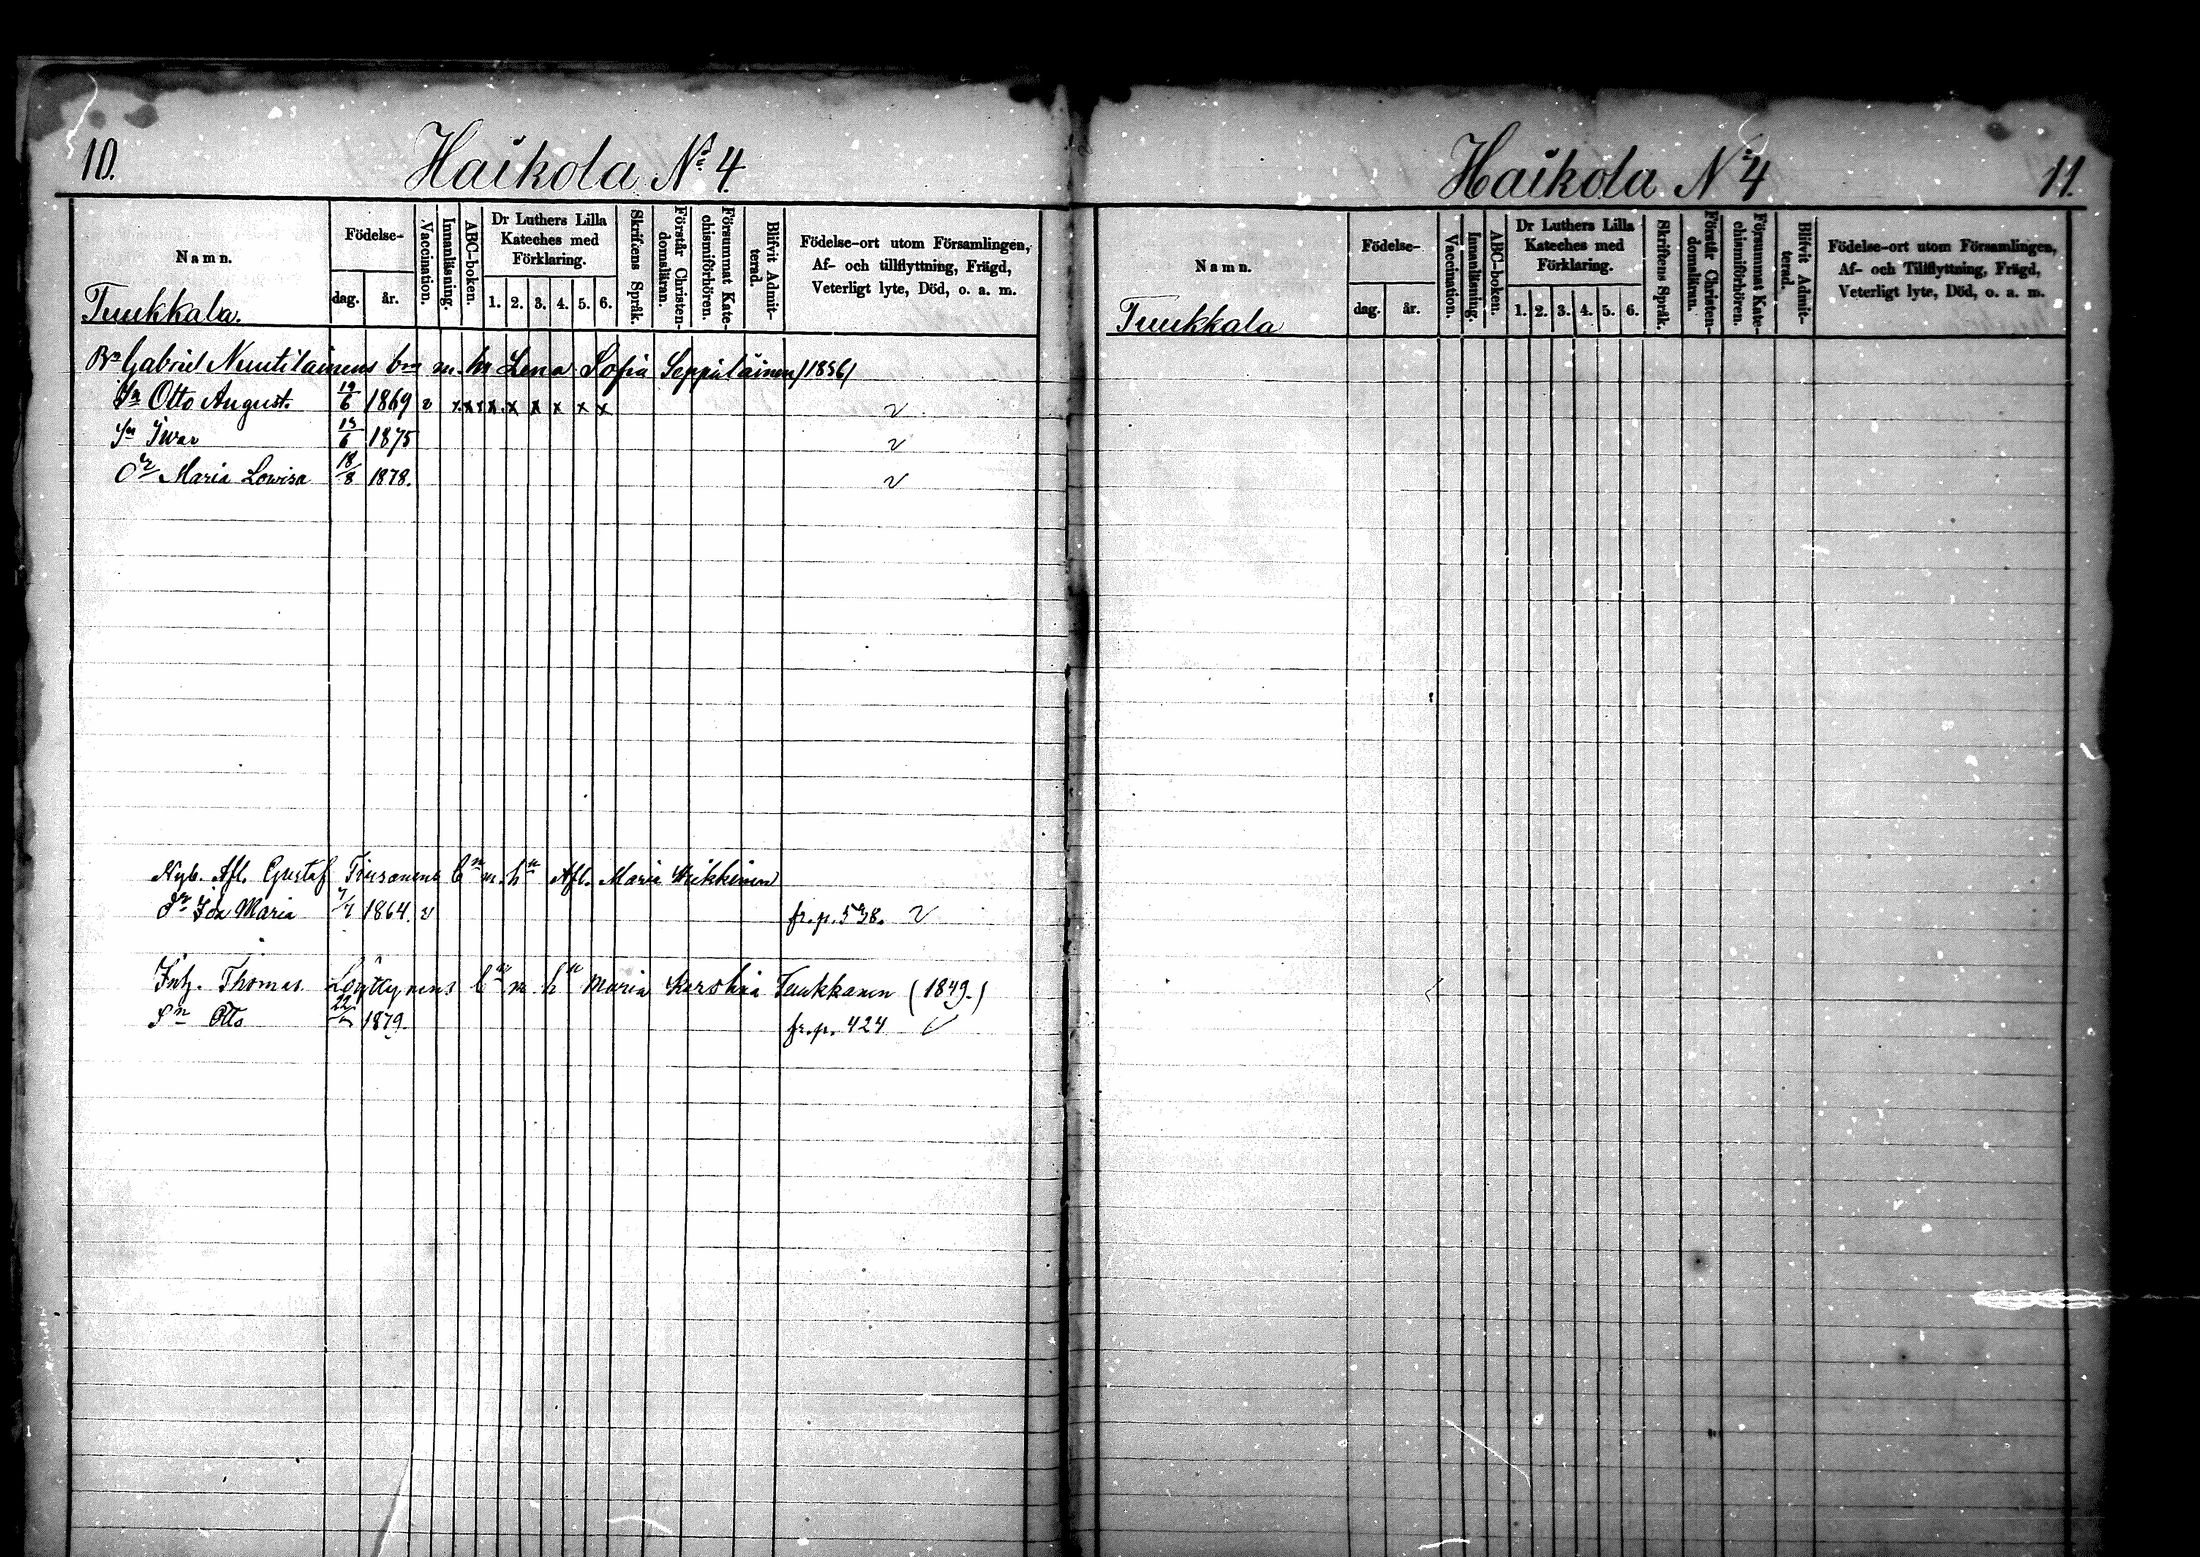 10.
Haikola No 4.
Namn.
Födelse-
dag.
år.
Vaccination.
Innanläsning.
ABC-boken.
Dr Luthers Lilla Kateches med Förklaring.
1. 2. 3. 4. 5. 6.
Skriftens Språk.
Förstår Christendomsläran.
Försummat Katechismiförhören.
Blifvit Admitterad.
Födelse-ort utom Församlingen, Af- och tillflyttning, Frägd, Veterligt lyte, Död, o. a. m.
Tuukkala.
Bn Gabriel Nuutilainens bn m. hu Lena Sofia Seppäläinen /1836/
Sn Otto August. 19/6 1869 v x x x x x x x x x v
Sn Iwar 13/6 1875 v
Dr Maria Lowisa 18/8 1878. v
Nyb. Afl. Gustaf bn m. hn Afl. Maria
Dr Ida Maria 7/7 1864. v fr. p. 538. v
Inh. Thomas Löyttynens bn m hn Maria Tuukkanen (1849.)
Sn Otto 1879. fr. p. 424 v
Haikola No 4
11.
Namn.
Födelse-
dag.
år.
Vaccination.
Innanläsning.
ABC-boken.
Dr Luthers Lilla Kateches med Förklaring.
1. 2. 3. 4. 5. 6.
Skriftens Språk.
Förstår Christendomsläran.
Försummat Katechismiförhören.
Blifvit Admitterad.
Födelse-ort utom Församlingen, Af- och Tillflyttning, Frägd, Veterligt lyte, Död, o. a. m.
Tuukkala